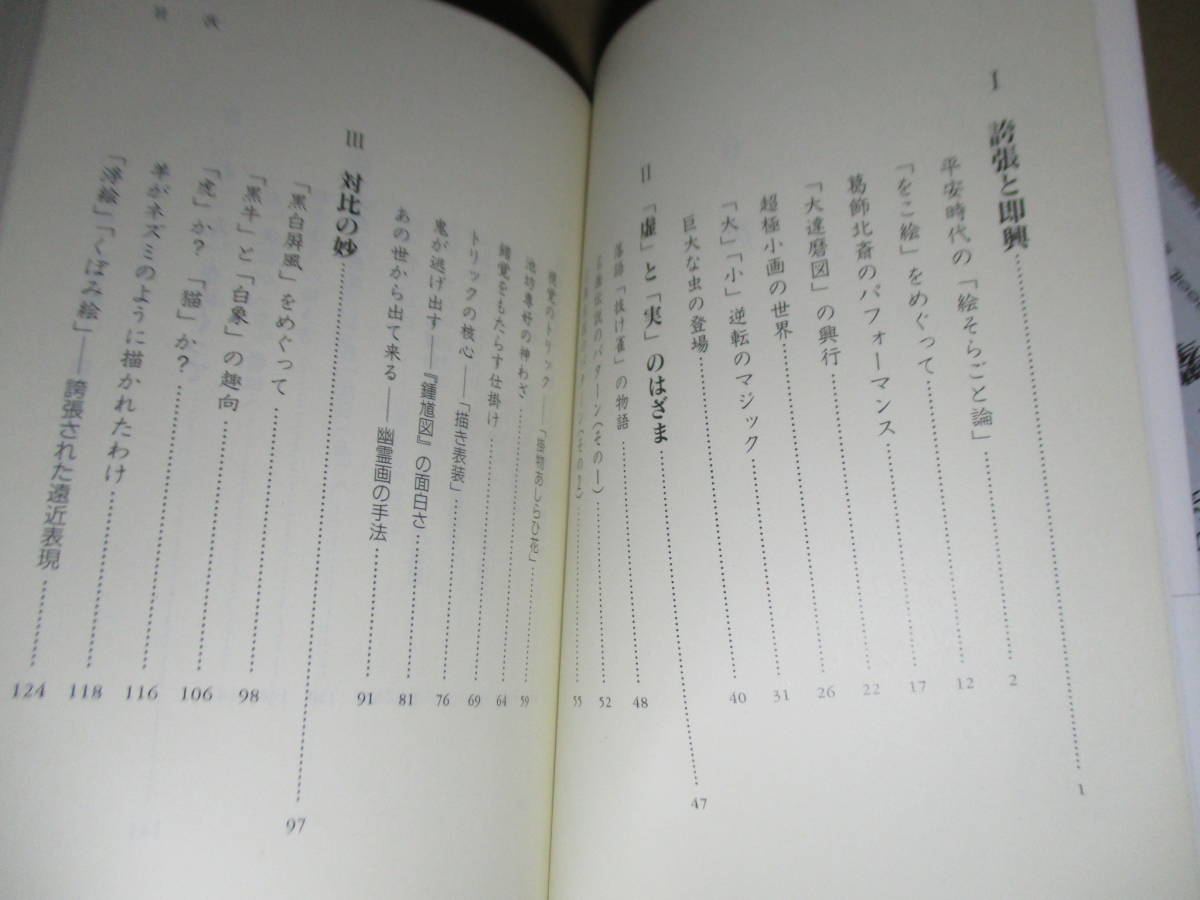 目次
I 誇張と即興 1
平安時代の「絵そらごと論」 2
「をこ絵」をめぐって 12
葛飾北斎のパフォーマンス 17
「大達磨図」の興行 22
超極小画の世界 26
「大」「小」逆転のマジック 31
巨大な虫の登場 40
II 「虚」と「実」のはざま 47
落語「抜け雀」の物語 48
伝説のパターン（その1） 52
パターン（その2） 55
視覚のトリック——「掛物あしらひ花」 59
池坊専好の神わざ 64
錯覚をもたらす仕掛け 69
トリックの核心——「描き表装」 76
鬼が逃げ出す——『鍾馗図』の面白さ 81
あの世から出て来る——幽霊画の手法 91
III 対比の妙 97
「黒白屏風」をめぐって 98
「黒牛」と「白象」の趣向 106
「虎」か？「猫」か？ 116
羊がネズミのように描かれたわけ 118
「浮絵」「くぼみ絵」——誇張された遠近表現 124